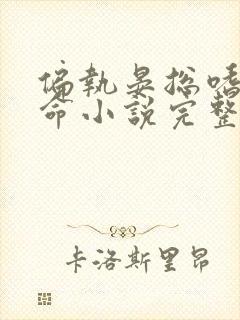 偏執晏総嗜
命小說完整
卡洛斯里昂